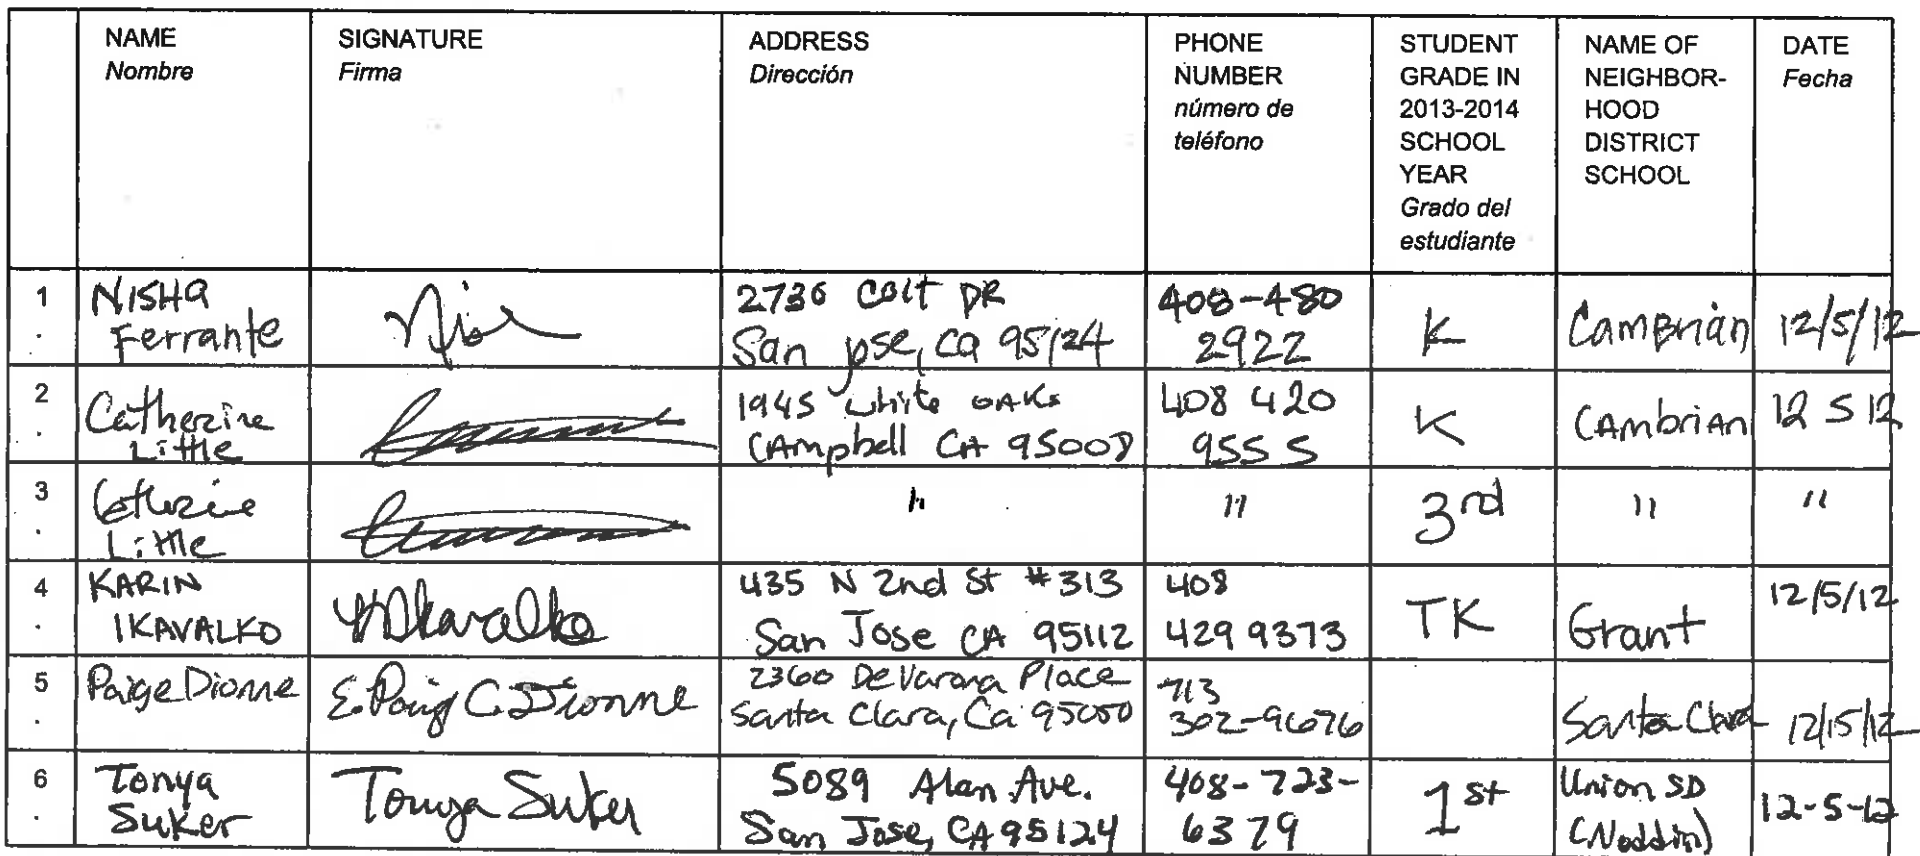 NAME
Nombre
SIGNATURE
Firma
ADDRESS
Dirección
PHONE
NUMBER
número de
teléfono
STUDENT
GRADE IN
2013-2014
SCHOOL
YEAR
Grado del
estudiante
NAME OF
NEIGHBOR-
HOOD
DISTRICT
SCHOOL
DATE
Fecha
1.
NISHA
Ferrante
2736 Colt DR
San Jose, Ca 95124
408-480
2922
K
Cambrian
12/5/12
2.
Catherine
Little
1945 White OAKs
CAmpbell CA 95008
408 420
9555
K
CAmbrian
12 5 12
3.
Catherine
Little
"
"
3rd
"
"
4.
KARIN
IKAVALKO
KIkavalko
435 N 2nd St #313
San Jose CA 95112
408
429 9373
TK
Grant
12/5/12
5.
Paige Dionne
E. Paige C. Dionne
2360 De Varona Place
Santa Clara, Ca 95050
713
302-9676
Santa Clara
12/15/12
6.
Tonya
Suker
Tonya Suker
5089 Alan Ave.
San Jose, CA 95124
408-723-
6379
1st
Union SD
(Noddin)
12-5-12